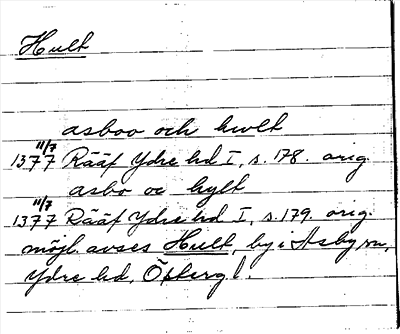 Hult
asboo och hwlt
11/7
1377 Rääf Ydre hd I, s. 178. orig.
asbo oc hylt
11/7
1377 Rääf Ydre hd I, s. 179. orig.
möjl. avses Hult, by i Asby sn,
Ydre hd, Östergl.